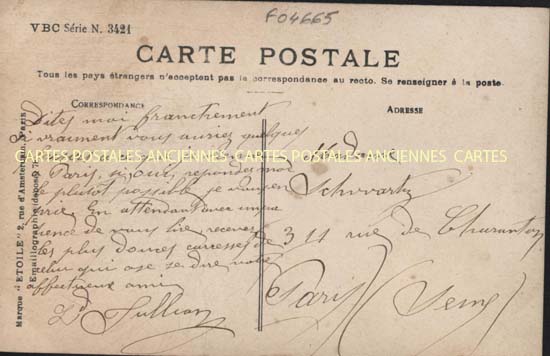 F04665
VBC Série N. 3421
CARTE POSTALE
Tous les pays étrangers n'acceptent pas la correspondance au recto. Se renseigner à la poste.
CORRESPONDANCE
ADRESSE
Marque "ETOILE" 2, rue d'Amsterdam, Paris
Emaillographie (déposé)
Dites moi franchement
si vraiment vous auriez quelques
CARTES POSTALES ANCIENNES CARTES POSTALES ANCIENNES CARTES
Paris, répondez moi
le plutôt possible je vous en
prie. En attendant avec impa
tience de vous lire recevez
les plus douces caresses de
celui qui ose se dire votre
affectueux ami
Madame
Schwartz
311 rue de Charenton
Paris (Seine)